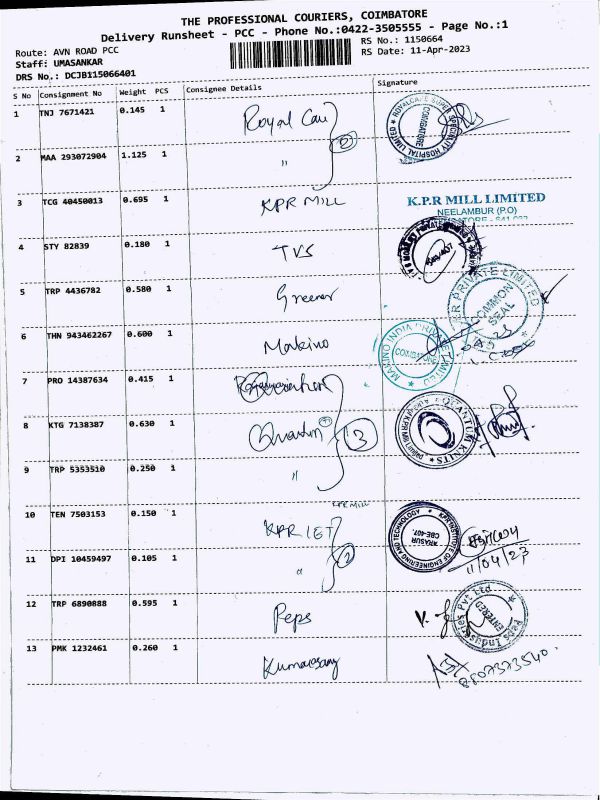 THE PROFESSIONAL COURIERS, COIMBATORE
Delivery Runsheet - PCC - Phone No.:0422-3505555 - Page No.:1
Route: AVN ROAD PCC
RS No.: 1150664
Staff: UMASANKAR
RS Date: 11-Apr-2023
DRS No.: DCJB115066401
S No Consignment No Weight PCS Consignee Details Signature
1 TNJ 7671421 0.145 1 Royal Care
ROYALCARE SUPER SPECIALITY HOSPITAL LIMITED COIMBATORE
2 MAA 293072904 1.125 1 "
2
3 TCG 40450013 0.695 1 KPR MILL
K.P.R MILL LIMITED
NEELAMBUR (P.O)
4 STY 82839 0.180 1 TVS
5 TRP 4436782 0.580 1
PRIVATE LIMITED COMMON SEAL
6 THN 943462267 0.600 1 Makino
MAKINO INDIA PRIVATE LIMITED COIMBATORE
7 PRO 14387634 0.415 1
8 KTG 7138387 0.630 1 Quantum
3
QUANTUM KNITS
9 TRP 5353510 0.250 1 "
KPR MILL
10 TEN 7503153 0.150 1 KPR IET
2
KPR INSTITUTE OF ENGINEERING AND TECHNOLOGY ARASUR CBE-407
11/04/23
11 DPI 10459497 0.105 1 "
12 TRP 6890888 0.595 1 Peps
Peps Industries Pvt Ltd ENTERED
13 PMK 1232461 0.260 1
8807373540